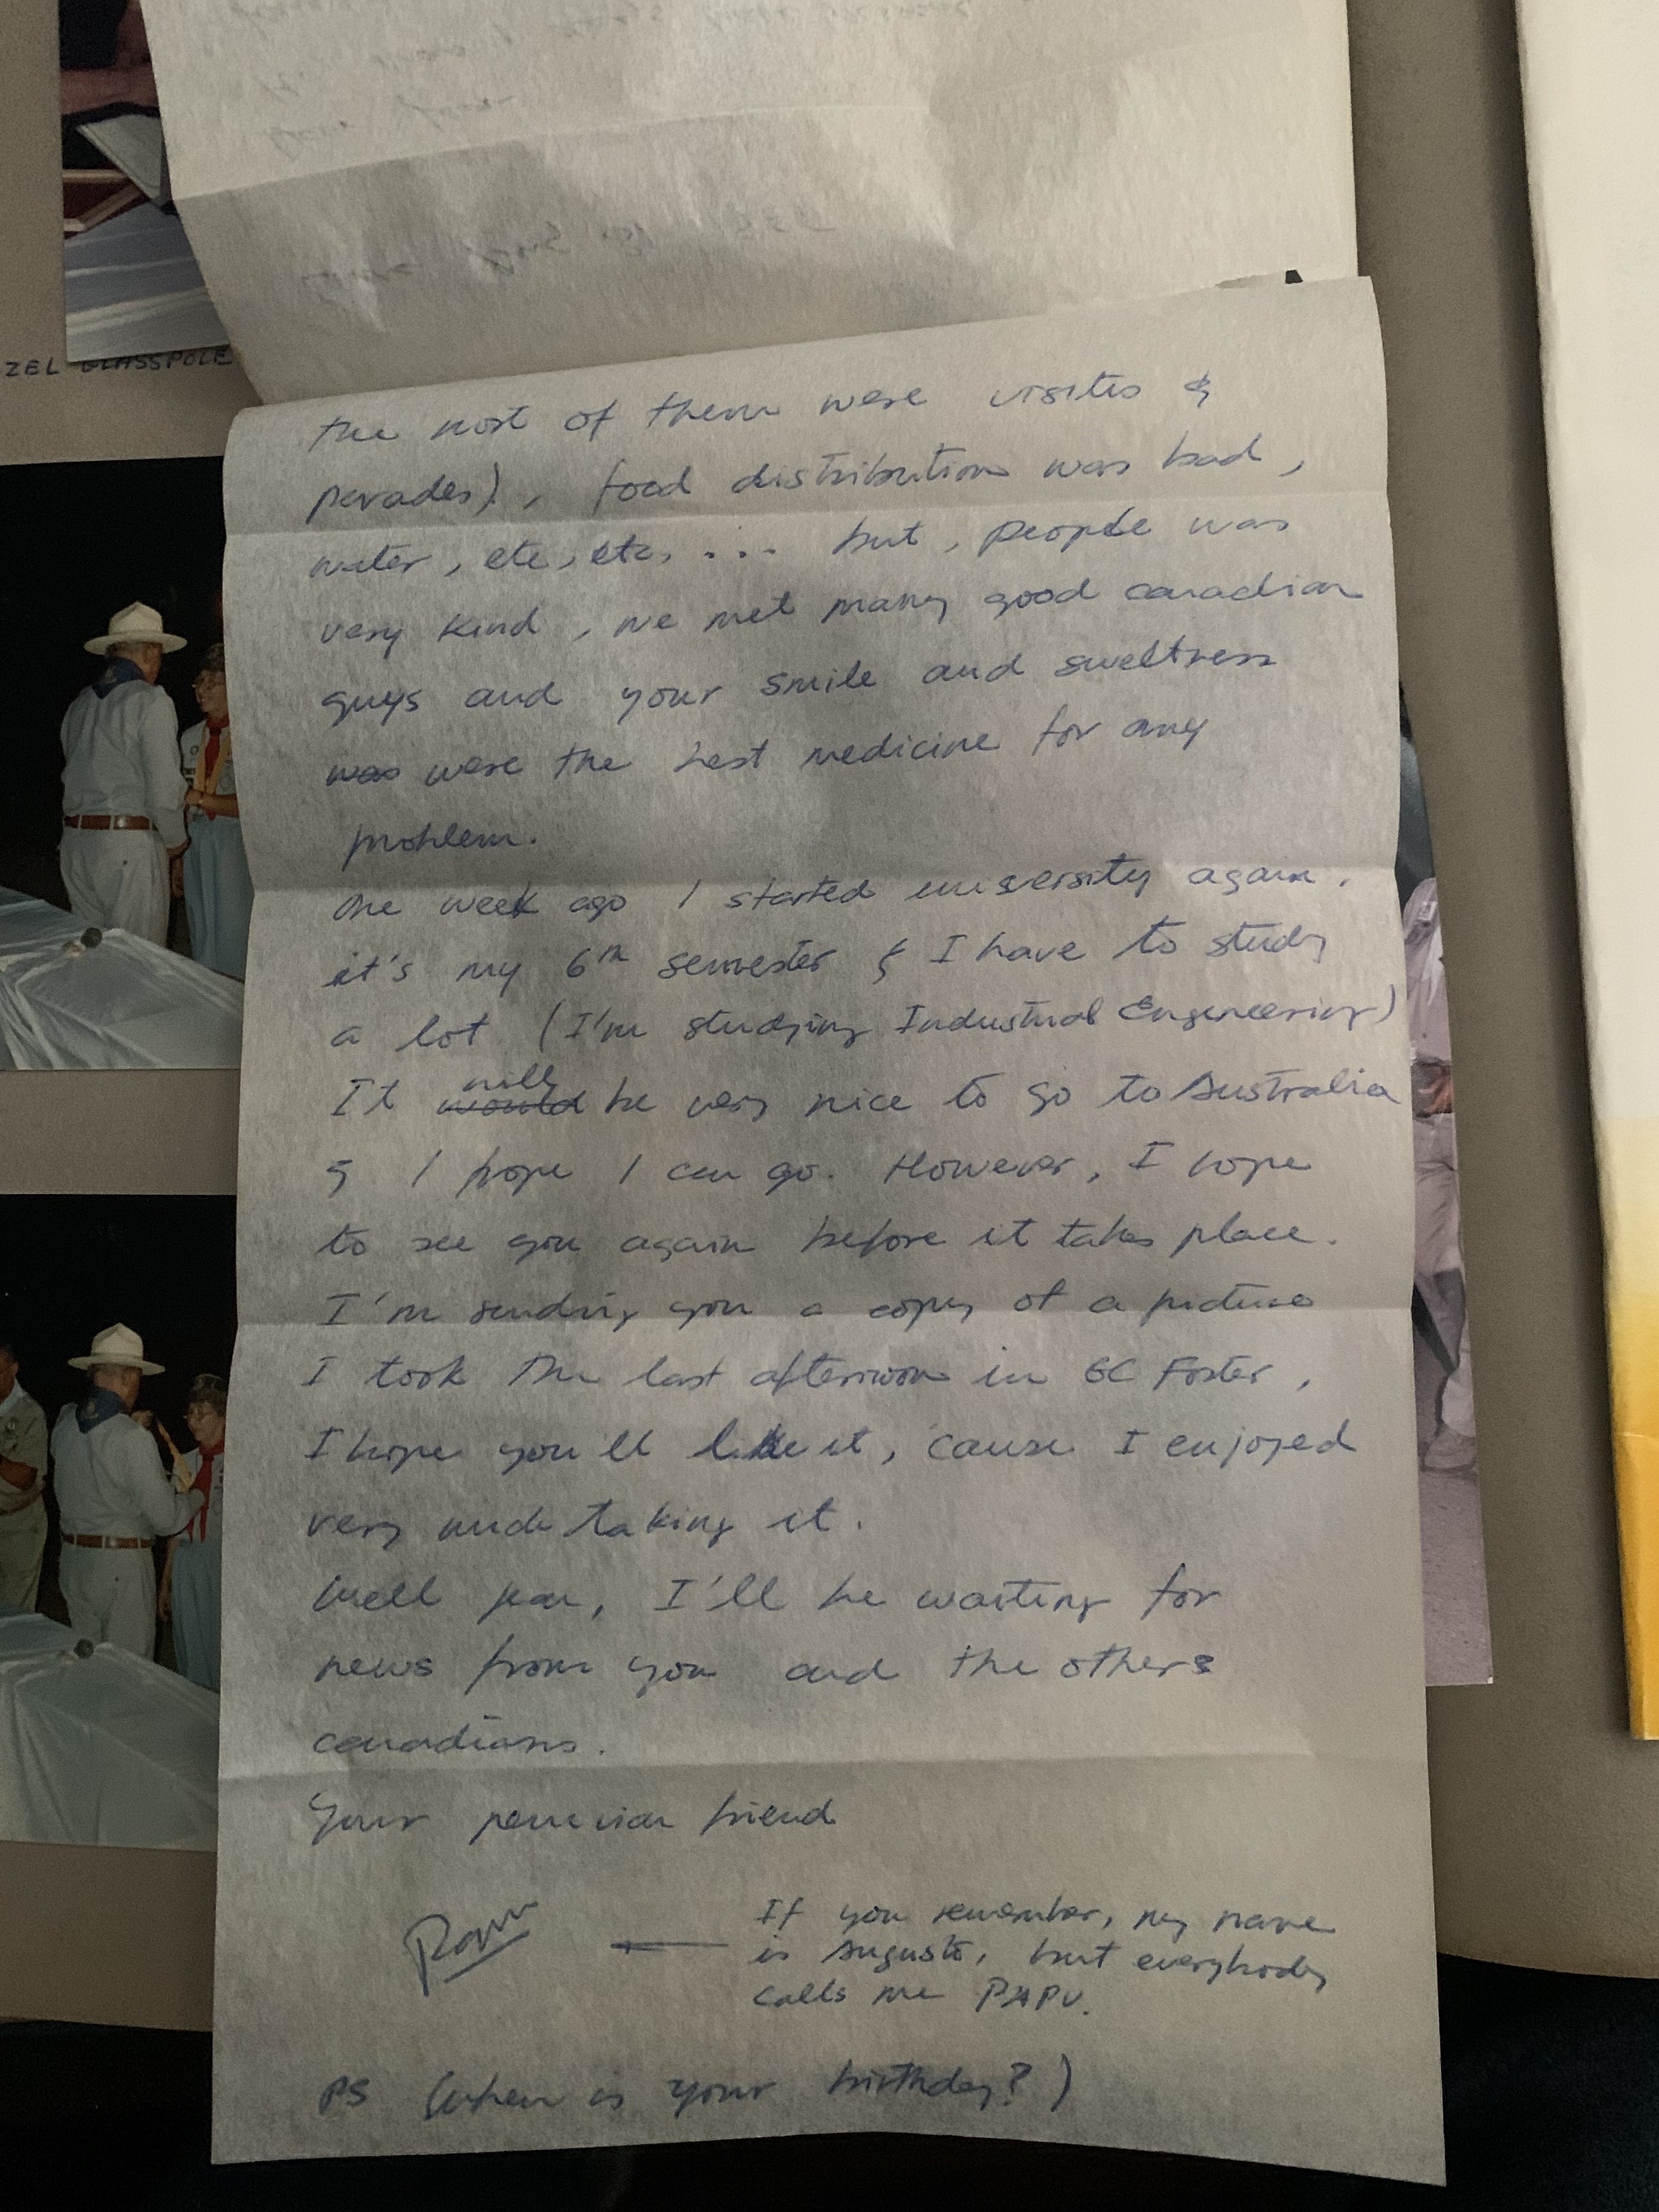 ZEL GLASSPOLE
the most of them were visites &
parades), food distribution was bad,
water, etc, etc, ... but, people was
very kind, we met many good canadian
guys and your smile and sweetness
was were the best medicine for any
problem.
One week ago I started university again.
it's my 6th semester & I have to study
a lot (I'm studying Industrial Engineering)
will
It would be very nice to go to Australia
& I hope I can go. However, I hope
to see you again before it takes place.
I'm sending you a copy of a picture
I took the last afternoon in GC Foster,
I hope you'll like it, 'cause I enjoyed
very much taking it.
Well I'll be waiting for
news from you and the others
canadians.
Your peruvian friend
If you remember, my name
is Augusto, but everybody
calls me PAPU.
PS (When is your birthday?)